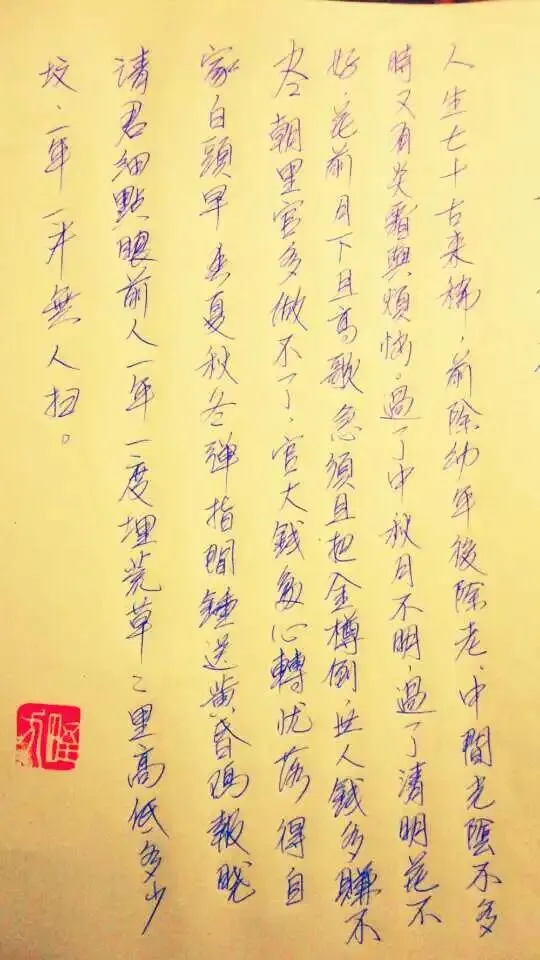 人生七十古来稀，前除幼年後除老。中間光陰不多
時又有炎霜與煩恼。過了中秋月不明，過了清明花不
好。花前月下且高歌急須且把金樽倒，世人錢多賺不
尽朝里官多做不了，官大錢多心轉忧落得自
家白頭早春夏秋冬弹指間鍾送黄昏鸡報晓
请君细點眼前人一年一度埋荒草草里高低多少
坟，一年一半無人扫。